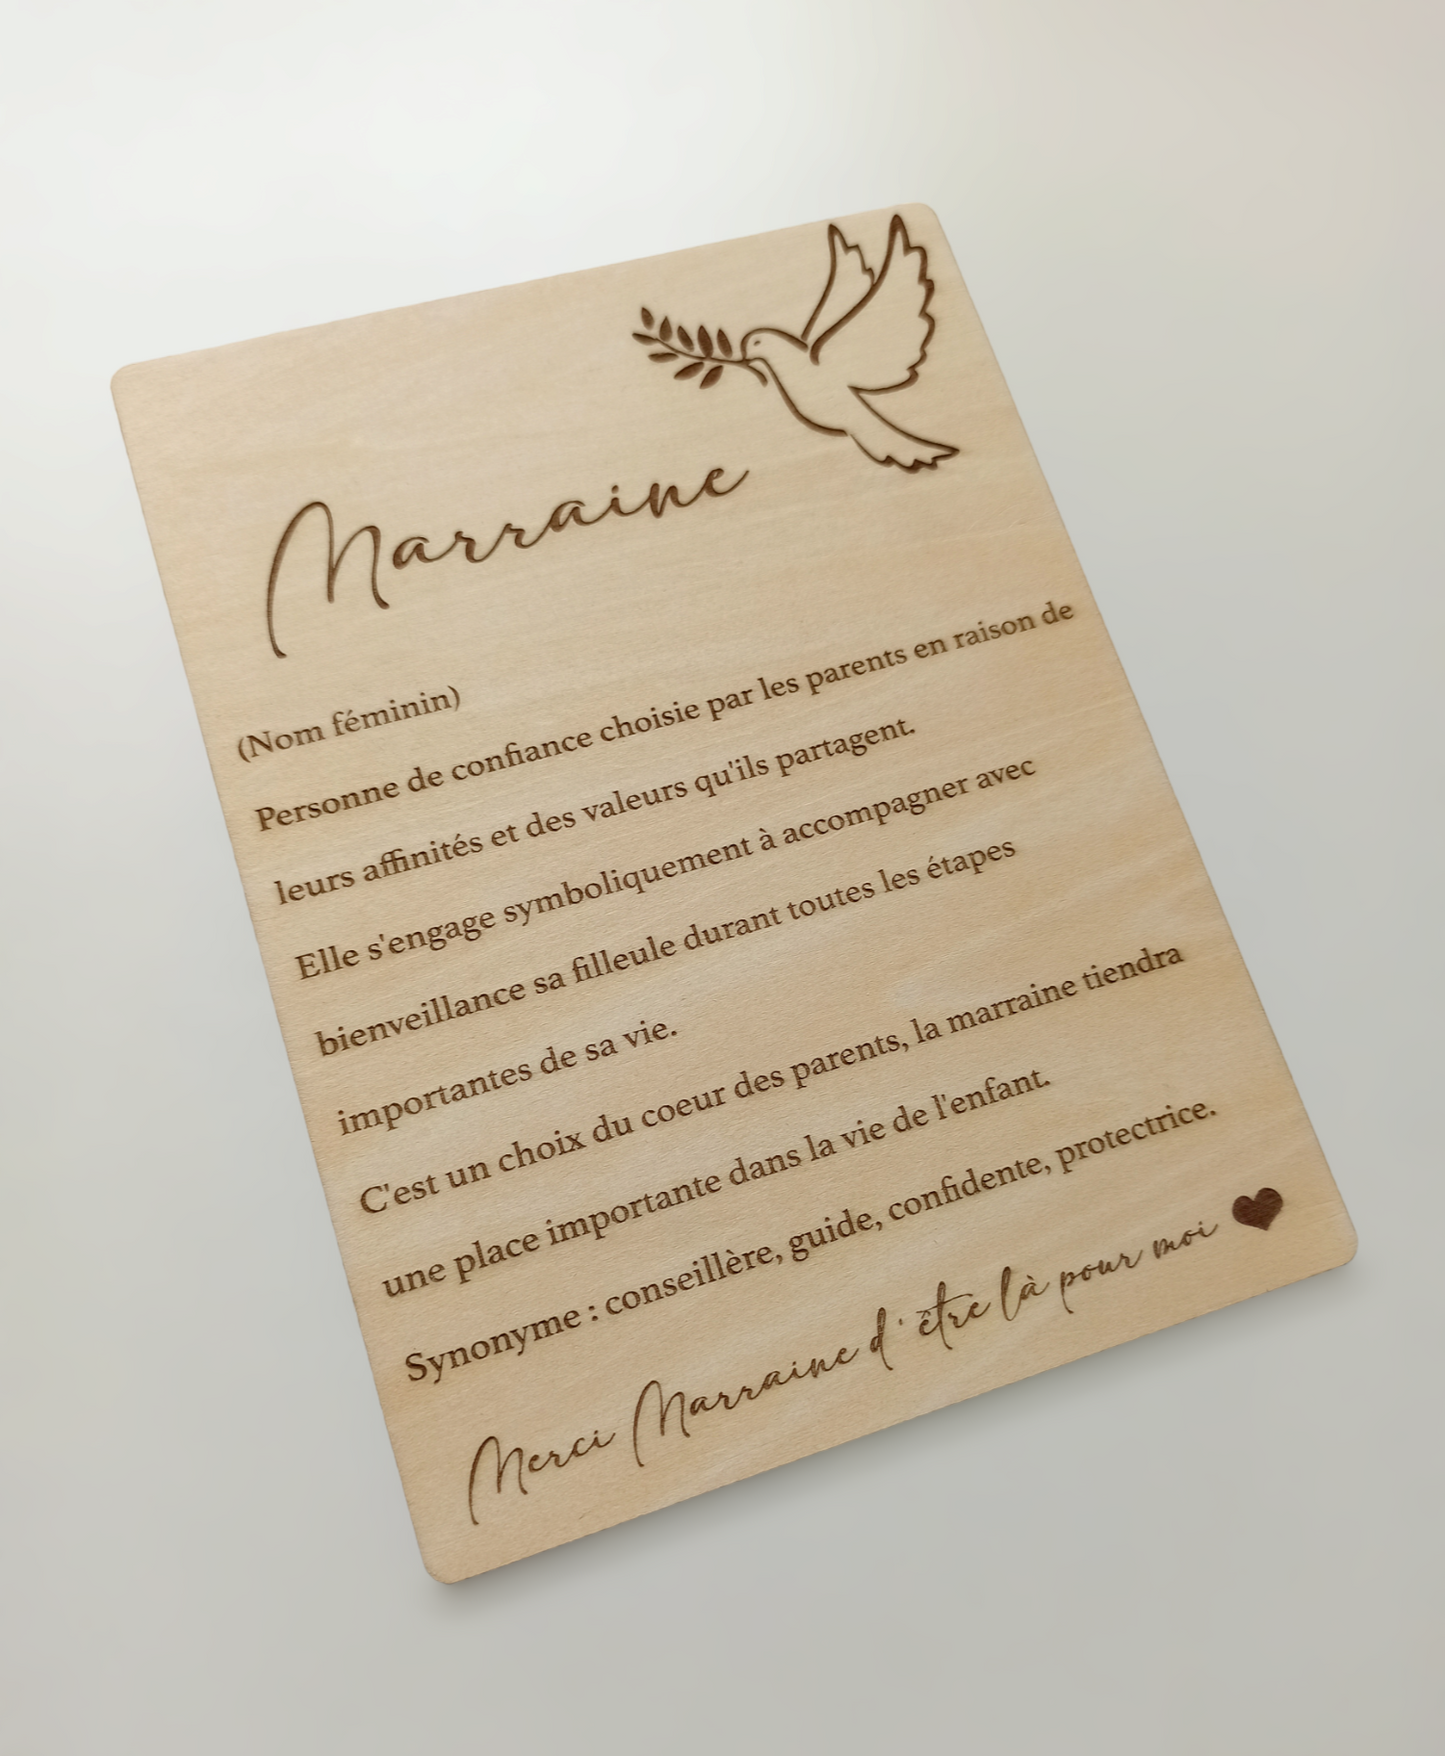 Marraine
(Nom féminin)
Personne de confiance choisie par les parents en raison de
leurs affinités et des valeurs qu'ils partagent.
Elle s'engage symboliquement à accompagner avec
bienveillance sa filleule durant toutes les étapes
importantes de sa vie.
C'est un choix du coeur des parents, la marraine tiendra
une place importante dans la vie de l'enfant.
Synonyme : conseillère, guide, confidente, protectrice.
Merci Marraine d'être là pour moi